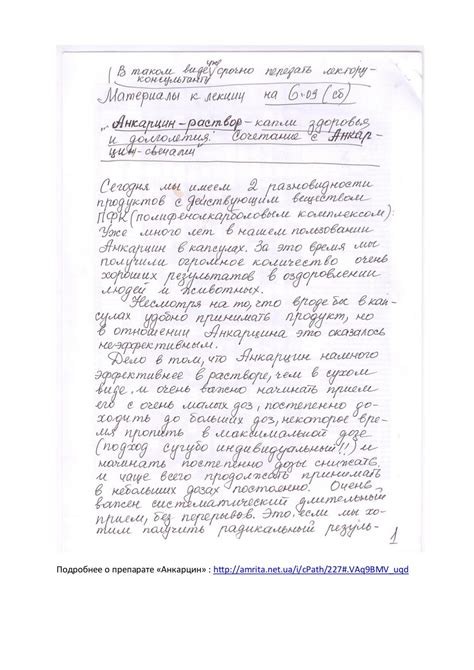 (В таком виде срочно передать лектору-
консультанту)
Материалы к лекции на 6.09 (сб)
„Анкарцин-раствор-капли здоровья
и долголетия. Сочетание с Анкар-
цин-свечами
Сегодня мы имеем 2 разновидности
продуктов с действующим веществом
ПФК (полифенолкарболовым комплексом):
Уже много лет в нашем пользовании
Анкарцин в капсулах. За это время мы
получили огромное количество очень
хороших результатов в оздоровлении
людей и животных.
Несмотря на то, что вроде бы в кап-
сулах удобно принимать продукт, но
в отношении Анкарцина это оказалось
неэффективным.
Дело в том, что Анкарцин намного
эффективнее в растворе, чем в сухом
виде и очень важно начинать прием
его с очень малых доз, постепенно до-
ходить до больших доз, некоторое вре-
мя пропить в максимальной дозе
(подход сугубо индивидуальный!!) и
начинать постепенно дозы снижать
и чаще всего продолжать принимать
в небольших дозах постоянно. Очень
важен систематический длительный
прием, без перерывов. Это, если мы хо-
тим получить радикальный резуль-
1
Подробнее о препарате «Анкарцин» : http://amrita.net.ua/i/cPath/227#.VAq9BMV_uqd